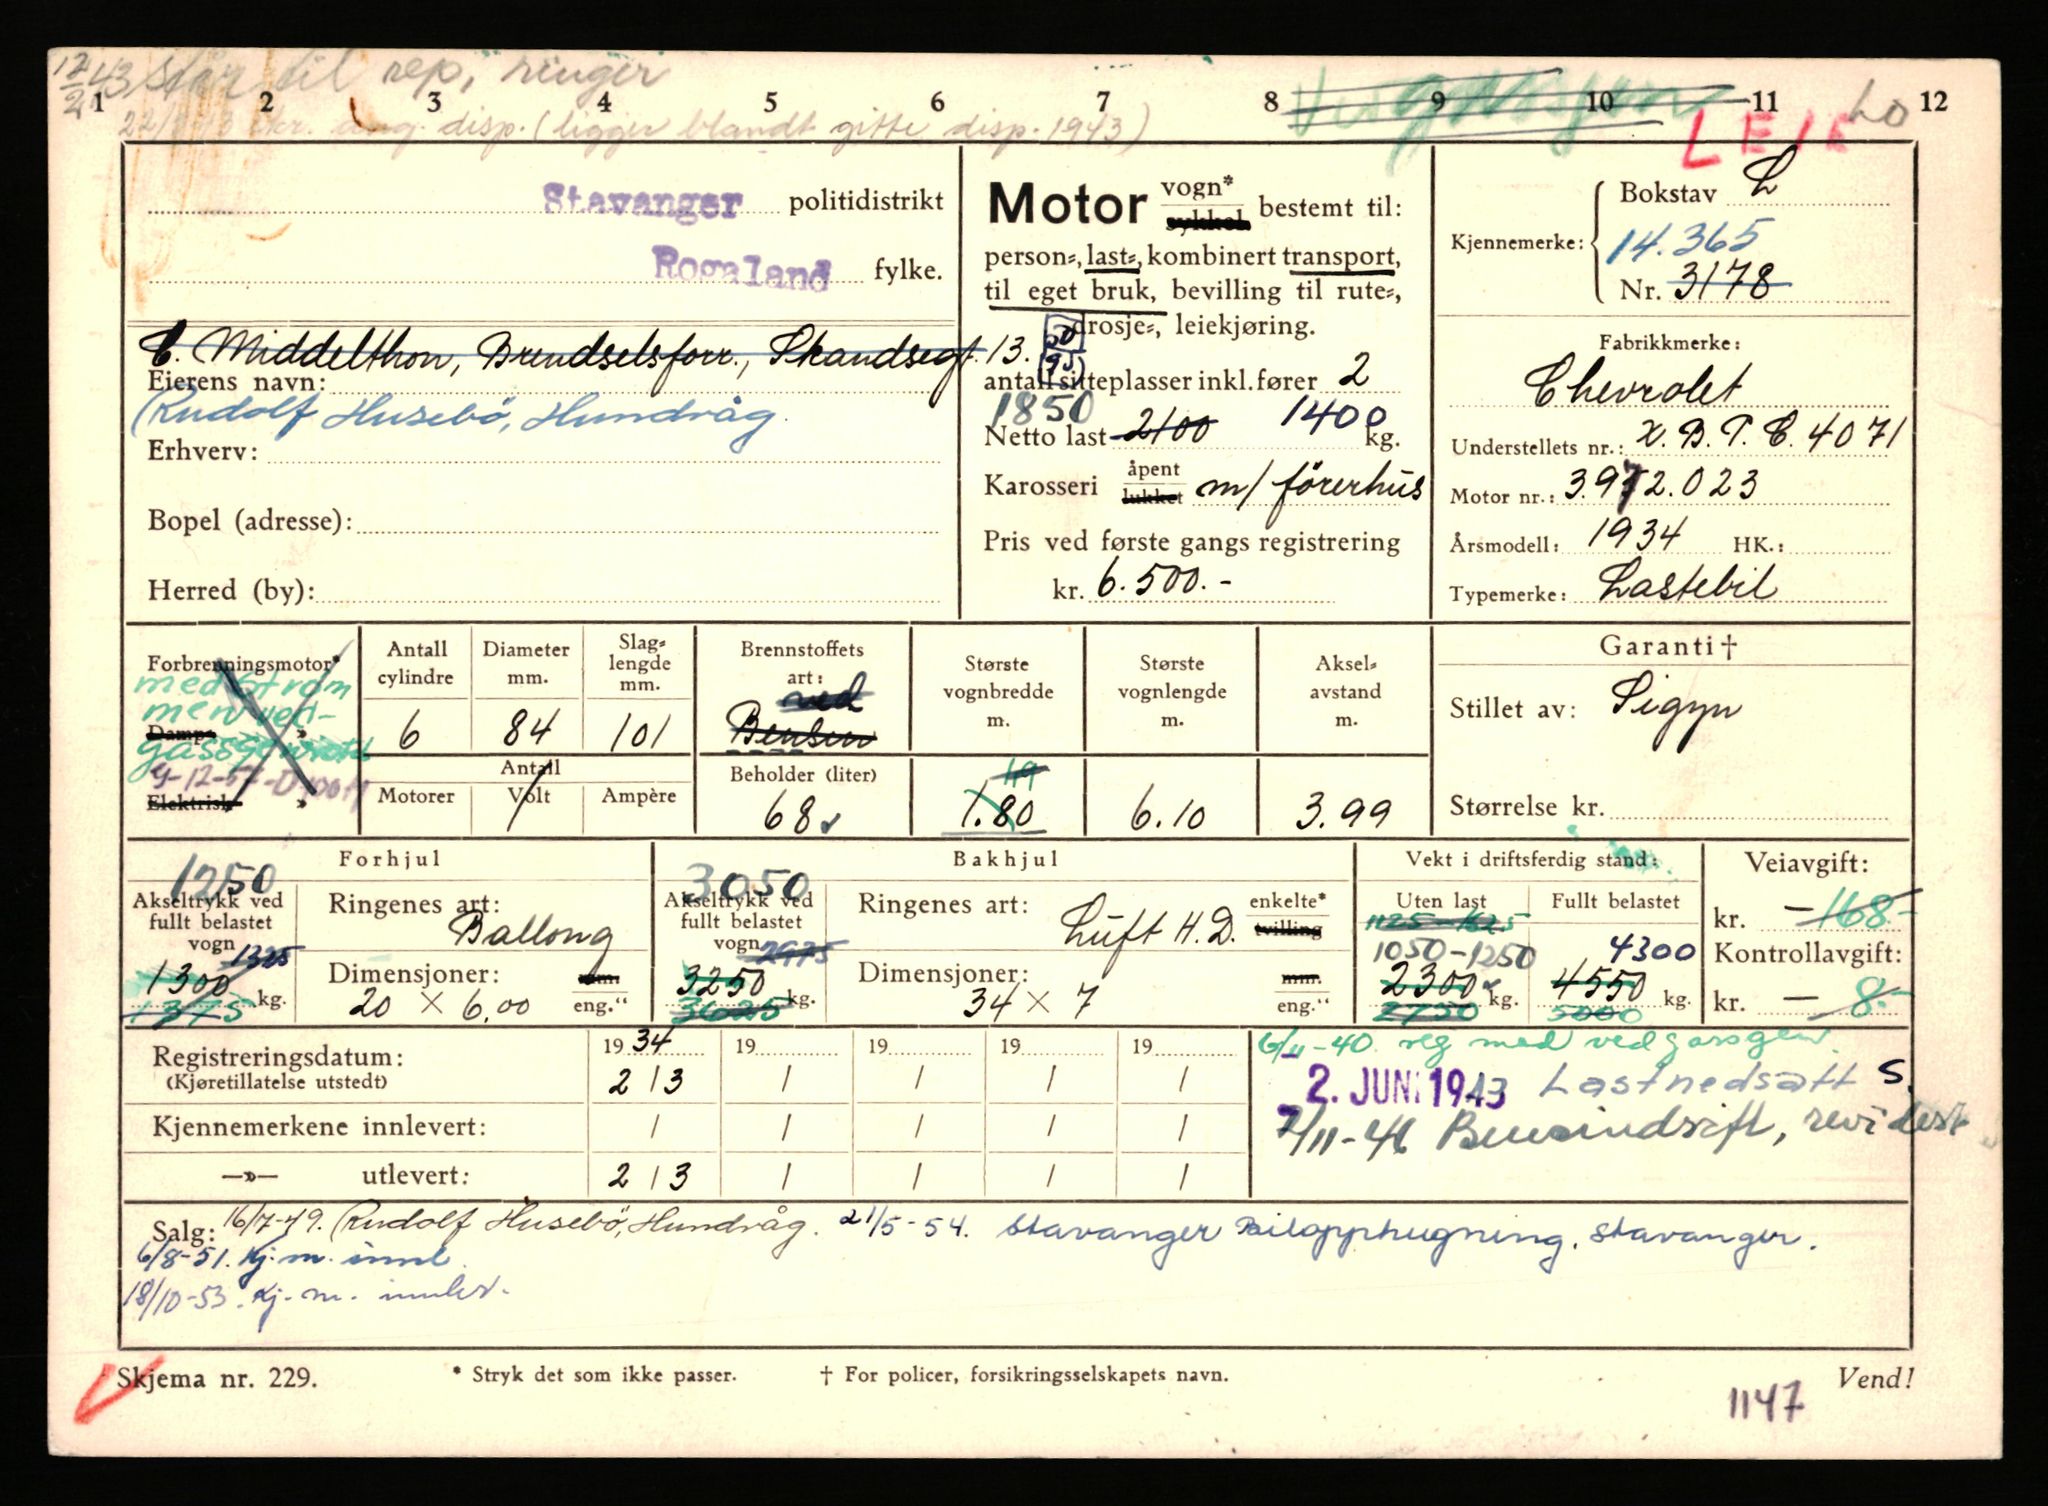 12/2 43 står til rep, ringer
1 2 3 4 5 6 7 8 9 10 11 12
disp. (ligger blandt gitte disp. 1943)
LEIE
Stavanger politidistrikt
Rogaland fylke.
C. Middelthon, Brendselsforr., Skandsegt. 13.
Eierens navn:
Rudolf Husebö, Hundvåg.
Erhverv:
Bopel (adresse):
Herred (by):
Motor vogn* sykkel bestemt til:
person-, last-, kombinert transport,
til eget bruk, bevilling til rute-,
drosje-, leiekjøring.
antall sitteplasser inkl. fører 2
1850
Netto last 2100 1400 kg.
Karosseri åpent lukket m/ förerhus
Pris ved første gangs registrering
kr. 6.500.-
Bokstav L
14.365
Kjennemerke:
Nr. 3178
Fabrikkmerke:
Chevrolet
Understellets nr.: X. B. T. C. 4071
Motor nr.: 3.972.023
Årsmodell: 1934 HK.:
Typemerke: Lastebil
Forbrenningsmotor*
Damp- »
Elektrisk »
Antall cylindre 6
Diameter mm. 84
Slag-lengde mm. 101
Antall
Motorer Volt Ampère
Brennstoffets art: ved
Bensin
Beholder (liter) 68
Største vognbredde m. 1.80
Største vognlengde m. 6.10
Aksel-avstand m. 3.99
Garanti †
Stillet av: Sigyn
Størrelse kr.
Forhjul
1250
Akseltrykk ved fullt belastet vogn 1325
1300 kg.
1375
Ringenes art: Ballong
Dimensjoner: mm.
20 × 6.00 eng."
Bakhjul
3050
Akseltrykk ved fullt belastet vogn 2975
3250 kg.
3625
Ringenes art: Luft H.D. enkelte* tvilling
Dimensjoner: mm.
34 × 7 eng."
Vekt i driftsferdig stand:
Uten last Fullt belastet
1125-1625
1050-1250 4300
2300 kg. 4550 kg.
2750 5000
Veiavgift:
kr. - 168.-
Kontrollavgift:
kr. - 8.-
Registreringsdatum: 1934 19 19 19 19
(Kjøretillatelse utstedt) 2 / 3 / / / /
Kjennemerkene innlevert: / / / / /
—»— utlevert: 2 / 3 / / / /
6/11-40. reg med vedgassgen.
2. JUNI 1943 Lastnedsatt S.
7/11-46 Bensindrift, revidert
Salg: 16/7-49. Rudolf Husebö, Hundvåg. 21/5-54. Stavanger Bilopphugning. Stavanger.
6/8-51. kj. m. innl.
18/10-53. Kj. m. innlev.
Skjema nr. 229. * Stryk det som ikke passer. † For policer, forsikringsselskapets navn. Vend!
1147